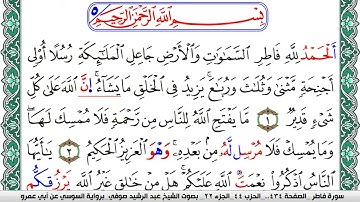 بِسْمِ اللَّهِ الرَّحْمَٰنِ الرَّحِيمِ
الْحَمْدُ لِلَّهِ فَاطِرِ السَّمَٰوَٰتِ وَالْأَرْضِ جَاعِلِ الْمَلَٰٓئِكَةِ رُسُلًا أُو۟لِىٓ
أَجْنِحَةٍ مَّثْنَىٰ وَثُلَٰثَ وَرُبَٰعَ ۚ يَزِيدُ فِى الْخَلْقِ مَا يَشَآءُ ۚ إِنَّ اللَّهَ عَلَىٰ كُلِّ
شَىْءٍ قَدِيرٌ ١ مَّا يَفْتَحِ اللَّهُ لِلنَّاسِ مِن رَّحْمَةٍ فَلَا مُمْسِكَ لَهَا ۖ
وَمَا يُمْسِكْ فَلَا مُرْسِل لَّهُۥ مِنۢ بَعْدِهِۦ ۚ وَهْوَ الْعَزِيزُ الْحَكِيمُ ٢ يَٰٓأَيُّهَا
النَّاسُ اذْكُرُوا۟ نِعْمَتَ اللَّهِ عَلَيْكُمْ ۚ هَلْ مِنْ خَٰلِقٍ غَيْرُ اللَّهِ يَرْزُقكُّم
سورة فاطر الصفحة ٤٣٤ الحزب ٤٤ الجزء ٢٢ بصوت الشيخ عبد الرشيد صوفي برواية السوسي عن أبي عمرو